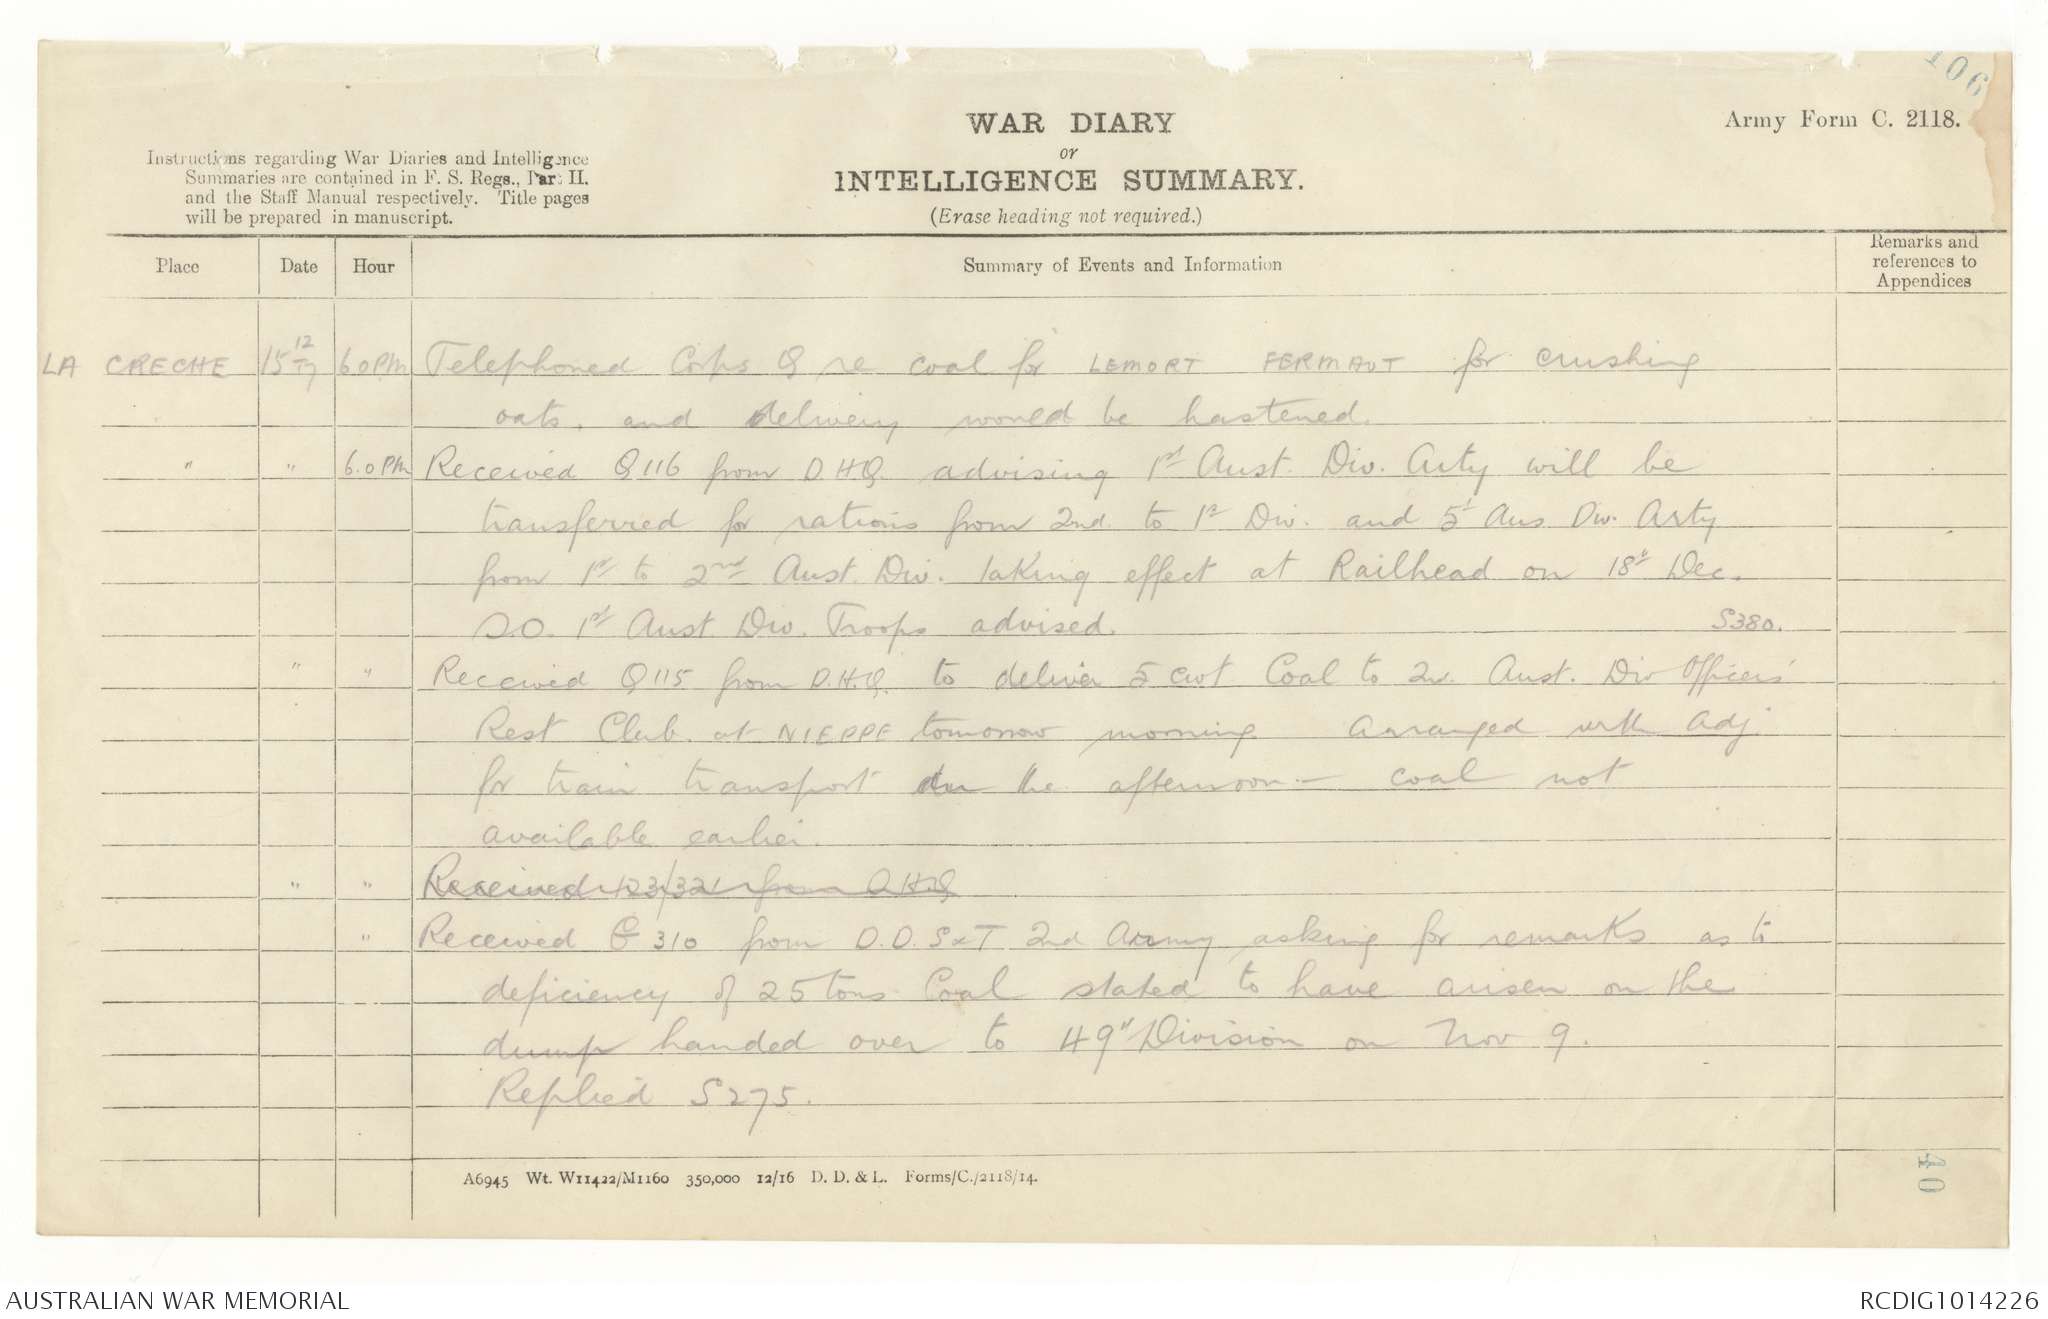 106
Army Form C. 2118.
WAR DIARY
or
INTELLIGENCE SUMMARY.
(Erase heading not required.)
Instructions regarding War Diaries and Intelligence
Summaries are contained in F. S. Regs., Part II.
and the Staff Manual respectively. Title pages
will be prepared in manuscript.
Place Date Hour Summary of Events and Information Remarks and references to Appendices
LA CRECHE 15 12/17 6.0 PM Telephoned Corps Q re coal for LEMORT FERMAUT for crushing
oats, and delivery would be hastened.
" " 6.0 PM Received Q116 from D.H.Q. advising 1st Aust. Div. Arty will be
transferred for rations from 2nd. to 1st Div. and 5th Aus Div. Arty
from 1st to 2nd Aust. Div. taking effect at Railhead on 18th Dec.
SO. 1st Aust Div. Troops advised. S380.
" " Received Q115 from D.H.Q. to deliver 5 cwt Coal to 2nd. Aust. Div Officers'
Rest Club at NIEPPE tomorrow morning. Arranged with Adj.
for train transport in the afternoon - coal not
available earlier.
" " Received 123/321 from D.H.Q
" Received 310 from D.D.S&T 2nd Army asking for remarks as to
deficiency of 25 tons Coal stated to have arisen on the
dump handed over to 49th Division on Nov 9.
Replied S275.
A6945 Wt. W11422/M1160 350,000 12/16 D. D. & L. Forms/C./2118/14.
40
AUSTRALIAN WAR MEMORIAL
RCDIG1014226